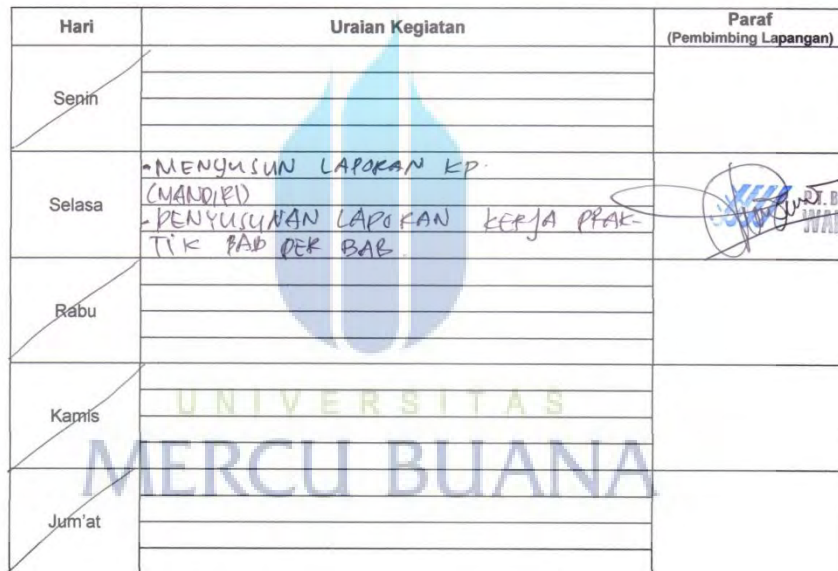 Hari Uraian Kegiatan Paraf
(Pembimbing Lapangan)
Senin
- MENYUSUN LAPORAN KP.
(MANDIRI)
Selasa
- PENYUSUNAN LAPORAN KERJA PRAK-
TIK BAB PER BAB.
Rabu
Kamis
UNIVERSITAS
MERCU BUANA
Jum'at